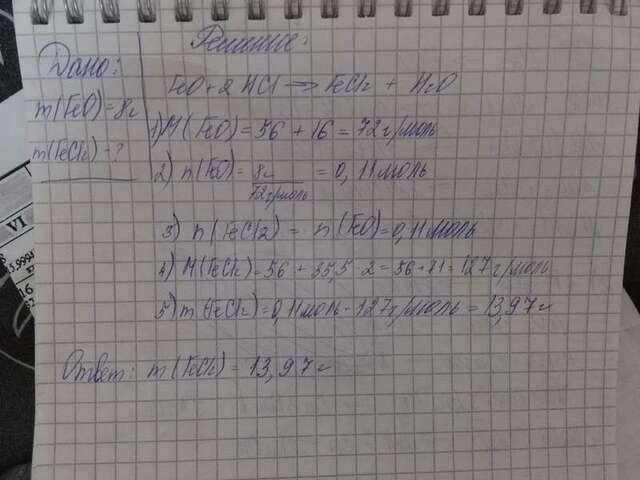 Дано:
m(FeO) = 8г
m(FeCl2) - ?
Решение:
FeO + 2 HCl → FeCl2 + H2O
1) M(FeO) = 56 + 16 = 72г/моль
2) n(FeO) = 8г / 72г/моль = 0,11моль
3) n(FeCl2) = n(FeO) = 0,11моль
4) M(FeCl2) = 56 + 35,5 · 2 = 56 + 71 = 127г/моль
5) m(FeCl2) = 0,11моль · 127г/моль = 13,97г
Ответ: m(FeCl2) = 13,97г
VI
16